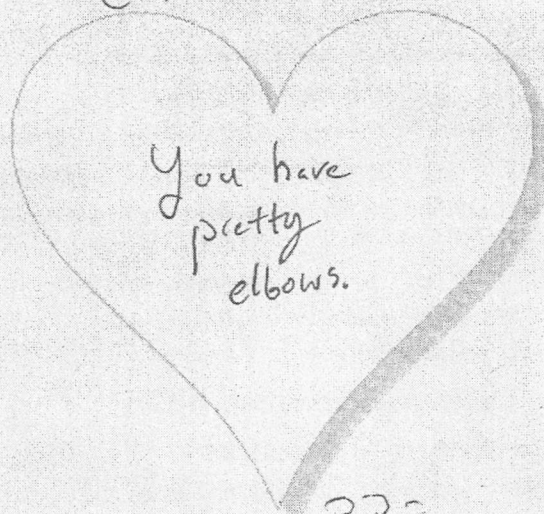 You have
pretty
elbows.